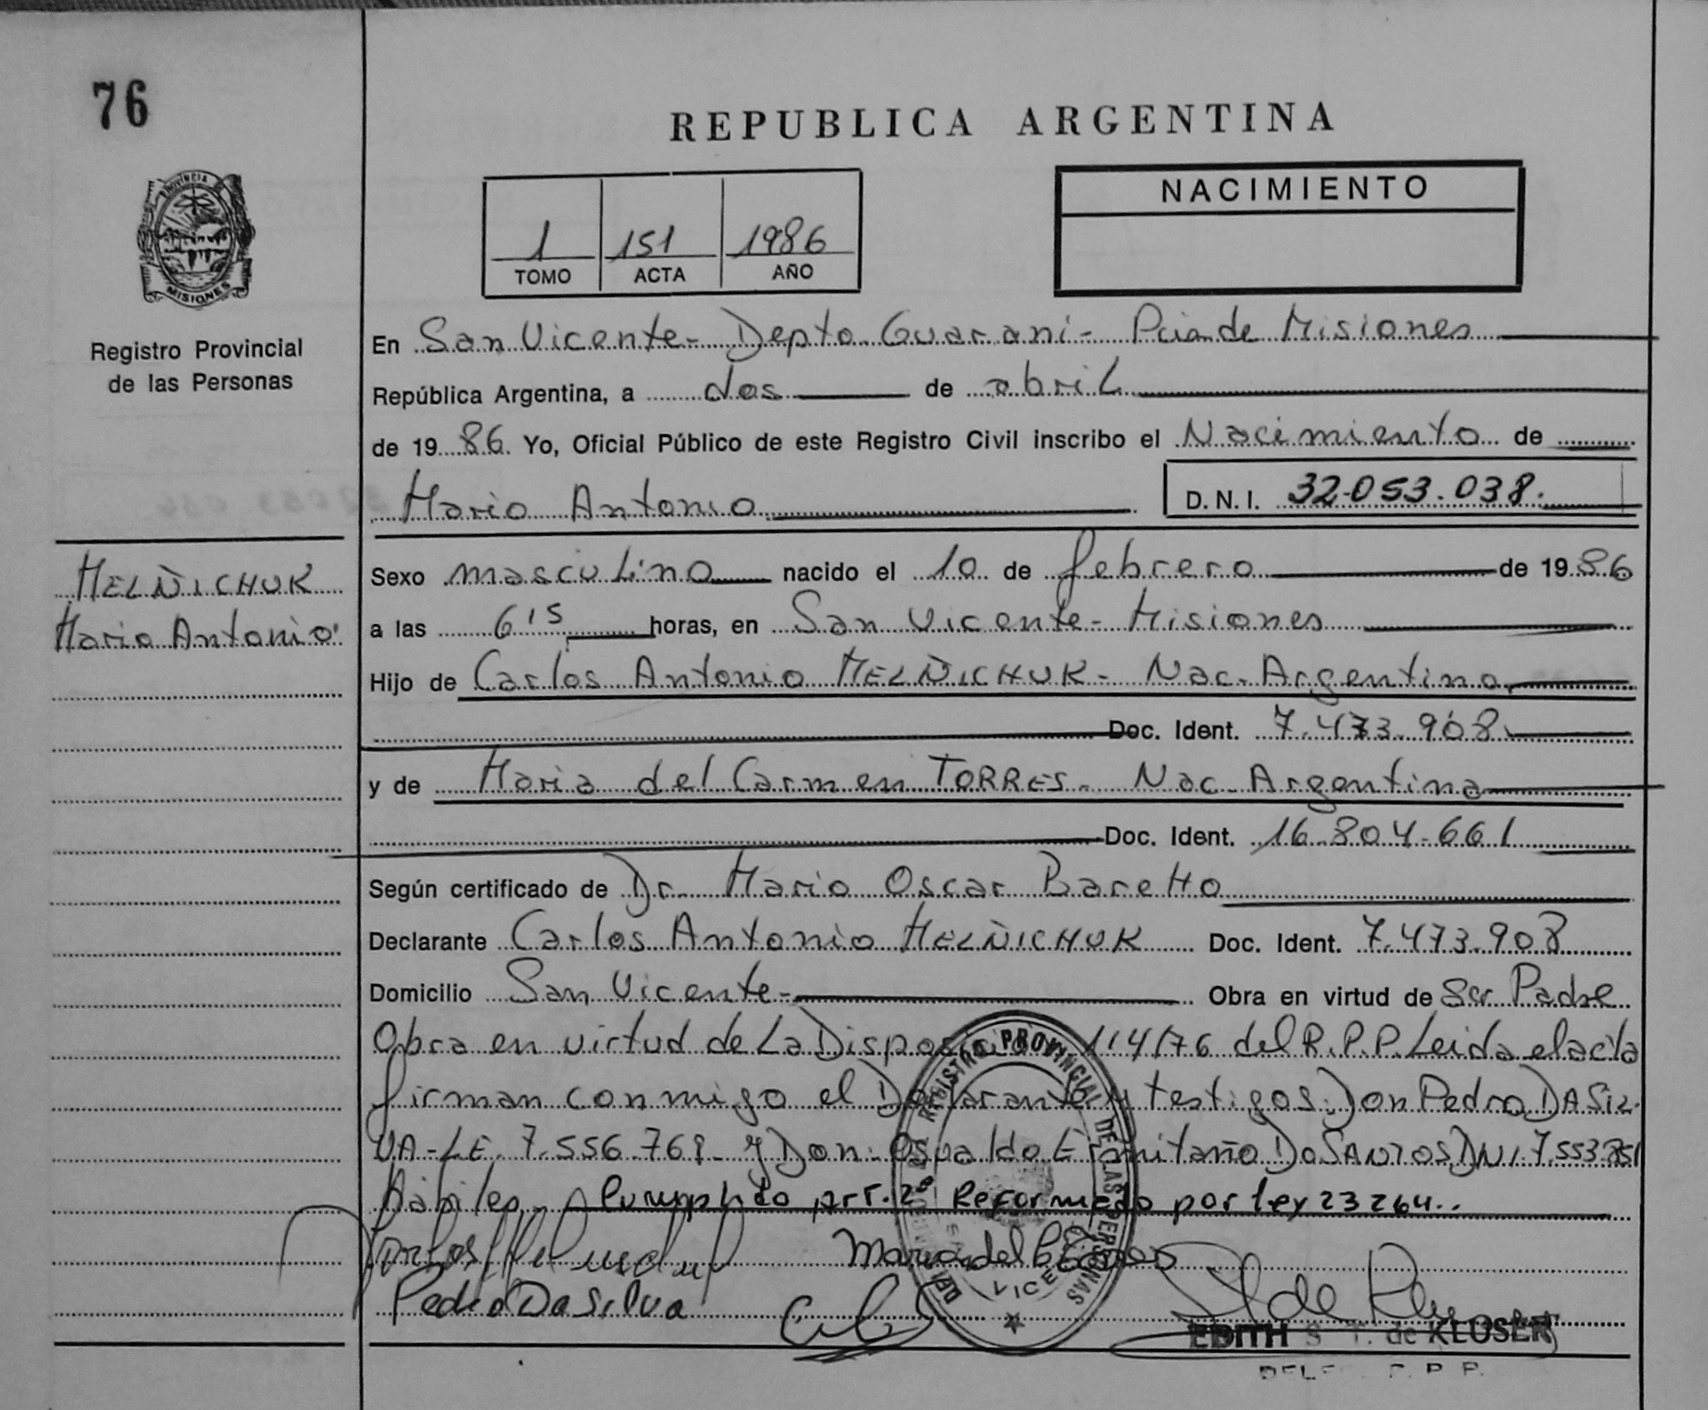 76
REPUBLICA ARGENTINA
PROVINCIA
MISIONES
Registro Provincial
de las Personas
1 151 1986
TOMO ACTA AÑO
NACIMIENTO
En San Vicente - Depto Guarani - Pcia de Misiones
República Argentina, a dos de abril
de 19 86. Yo, Oficial Público de este Registro Civil inscribo el Nacimiento de
Mario Antonio D.N.I. 32.053.038.
MELÑICHUK
Mario Antonio
Sexo masculino nacido el 10 de febrero de 19 86
a las 6 15 horas, en San Vicente - Misiones
Hijo de Carlos Antonio MELÑICHUK - Nac. Argentino
Doc. Ident. 7.473.908
y de Maria del Carmen TORRES - Nac. Argentina
Doc. Ident. 16.804.661
Según certificado de Dr. Mario Oscar Baretto
Declarante Carlos Antonio MELÑICHUK Doc. Ident. 7.473.908
Domicilio San Vicente - Obra en virtud de Ser Padre
Obra en virtud de La 114/76 del R.P.P. Leida el acta
firman conmigo el Declarante y testigos: Don Pedro DA SIL-
VA - LE. 7.556.769 y Don Osvaldo DoSANTOS DNI 7.553.
Hábiles. Cumplido art. 2º Reformado por ley 23264..
Maria del C
Pedro Da Silva
REGISTRO PROVINCIAL DE LAS PERSONAS
EDITH S. T. de KLOSER